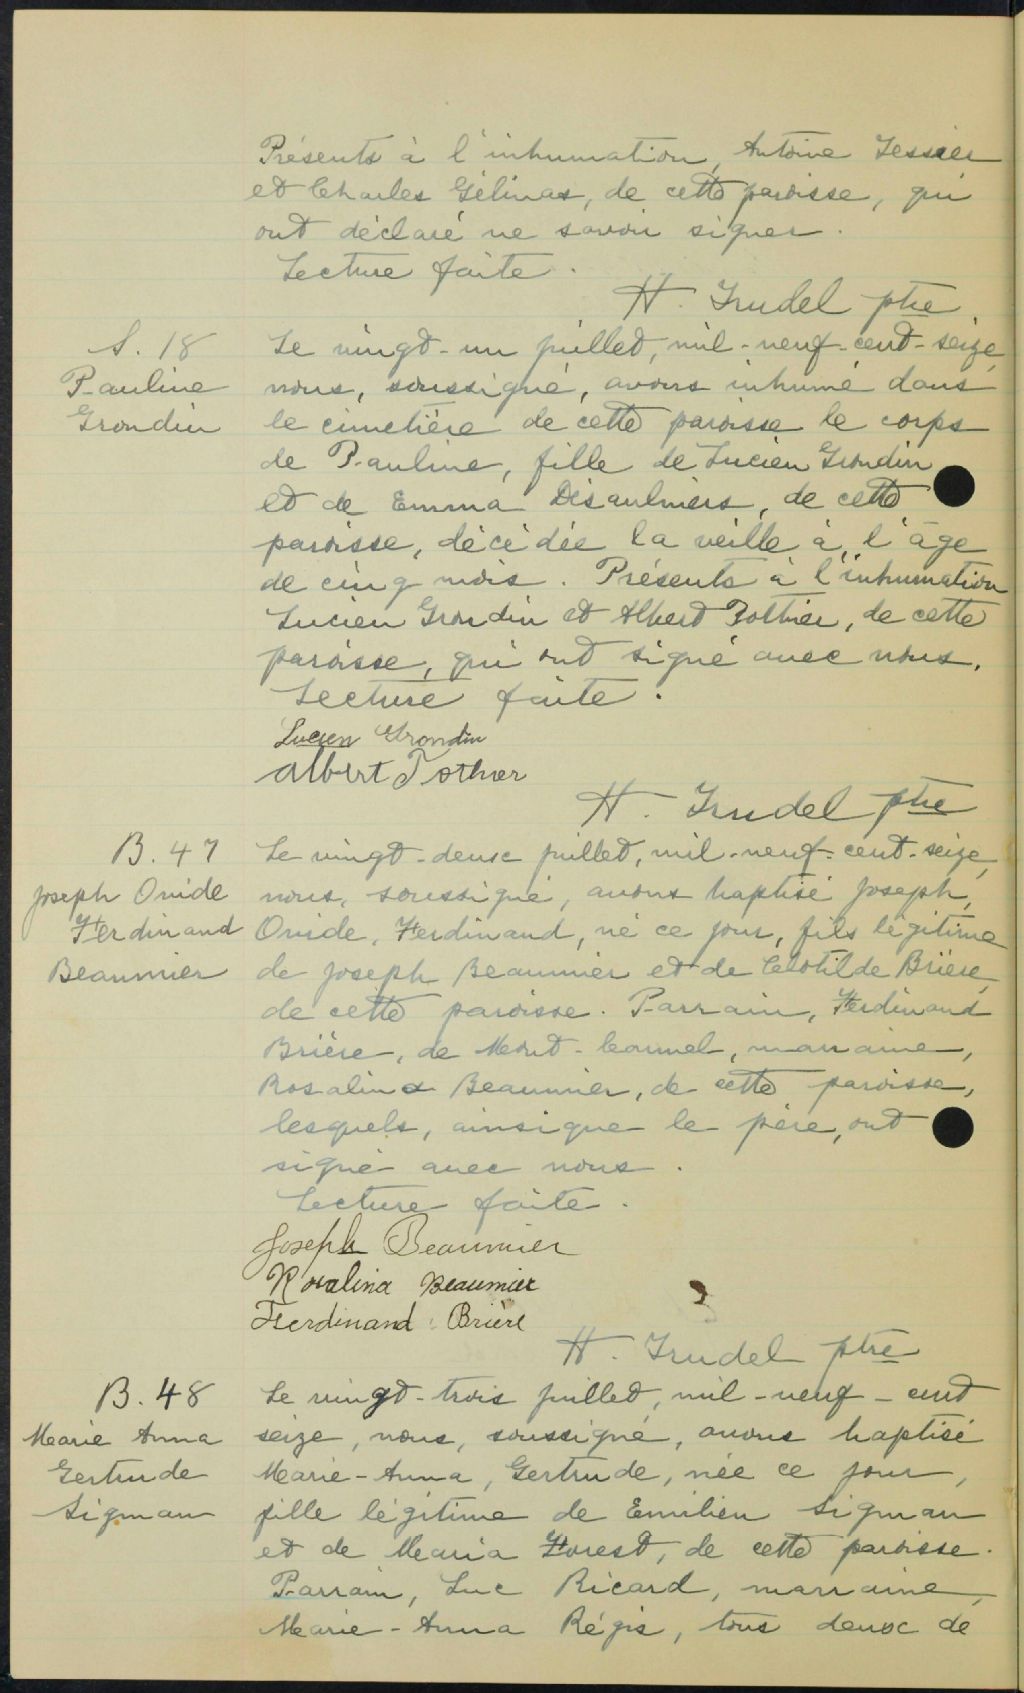 Présents à l'inhumation, Antoine Tessier
et Charles Gélinas, de cette paroisse, qui
ont déclaré ne savoir signer.
Lecture faite.
H. Trudel ptre
S. 18
Pauline
Grondin
Le vingt-un juillet, mil-neuf-cent-seize,
nous, soussigné, avons inhumé dans
le cimetière de cette paroisse le corps
de Pauline, fille de Lucien Grondin
et de Emma Désaulniers, de cette
paroisse, décédée la veille à l'âge
de cinq mois. Présents à l'inhumation
Lucien Grondin et Albert Pothier, de cette
paroisse, qui ont signé avec nous.
Lecture faite.
Lucien Grondin
Albert Pothier
H. Trudel ptre
B. 47
Joseph Ovide
Ferdinand
Beaumier
Le vingt-deux juillet, mil-neuf-cent-seize,
nous, soussigné, avons baptisé Joseph,
Ovide, Ferdinand, né ce jour, fils légitime
de Joseph Beaumier et de Clotilde Brière,
de cette paroisse. Parrain, Ferdinand
Brière, de Mont-Carmel, marraine,
Rosalina Beaumier, de cette paroisse,
lesquels, ainsi que le père, ont
signé avec nous.
Lecture faite.
Joseph Beaumier
Rosalina Beaumier
Ferdinand Brière
H. Trudel ptre
B. 48
Marie Anna
Gertrude
Sigman
Le vingt-trois juillet, mil-neuf-cent
seize, nous, soussigné, avons baptisé
Marie-Anna, Gertrude, née ce jour,
fille légitime de Emilien Sigman
et de Maria Forest, de cette paroisse.
Parrain, Luc Ricard, marraine,
Marie-Anna Régis, tous deux de